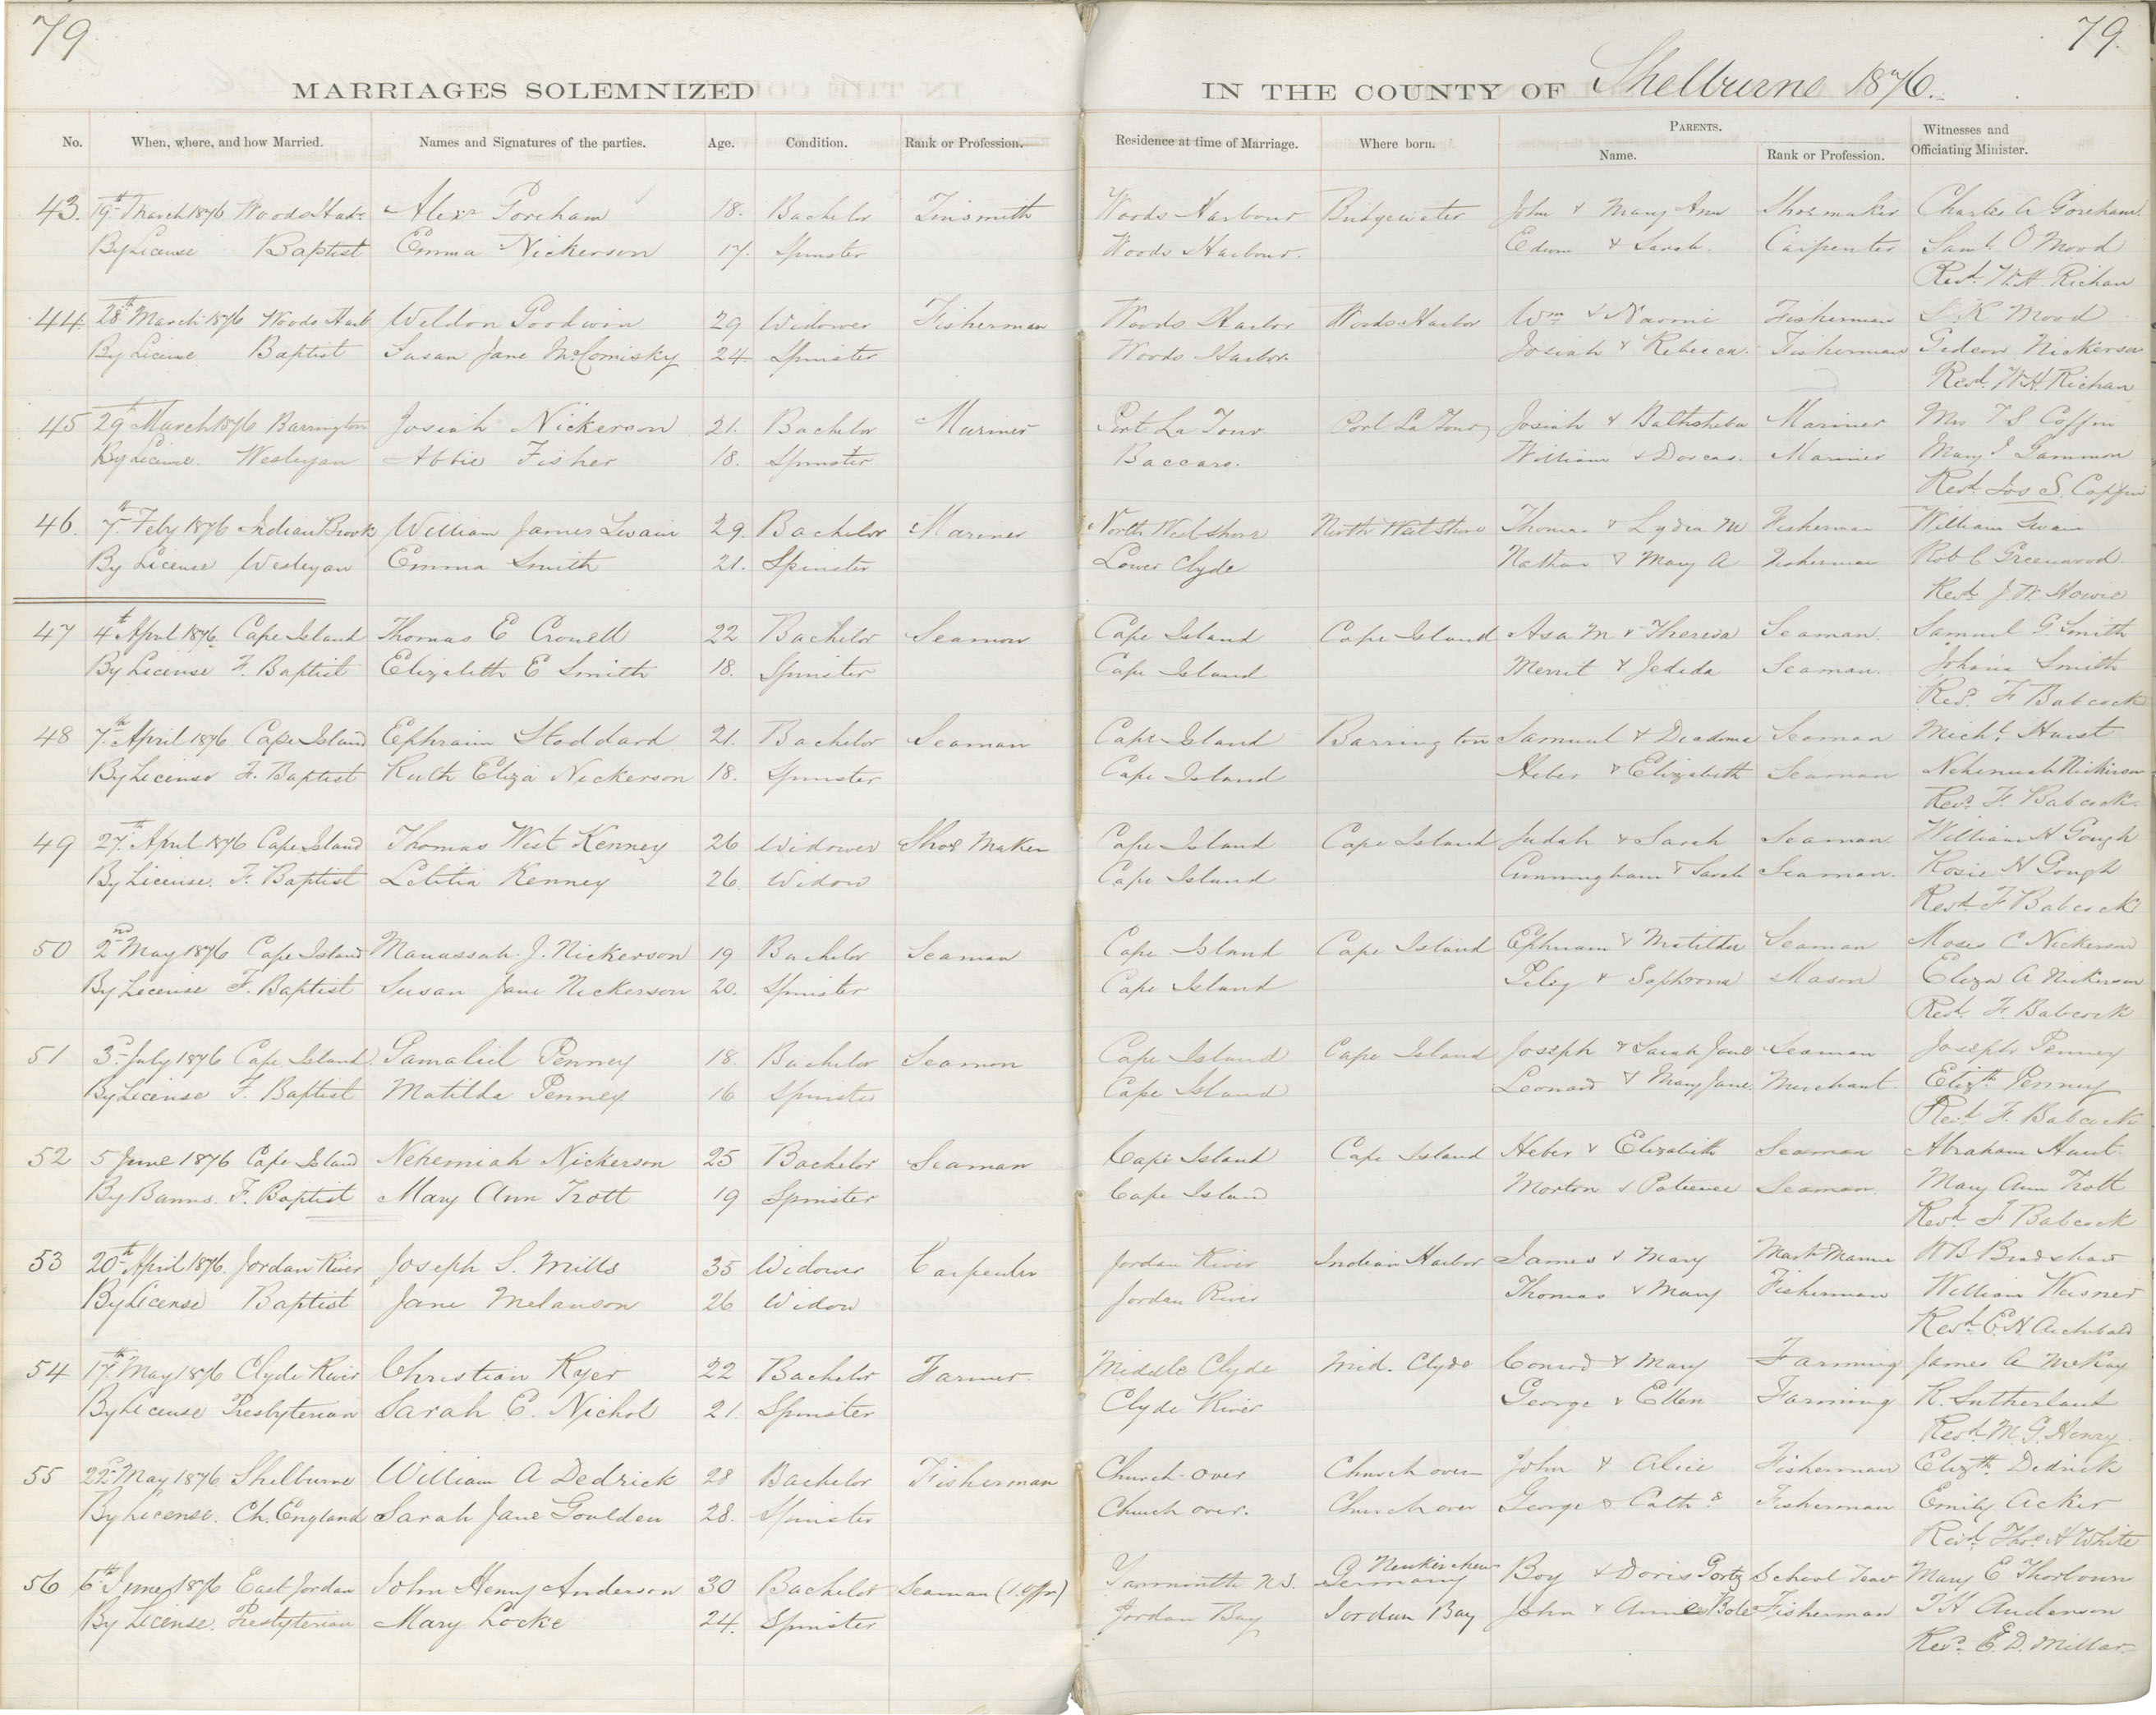 79. 79.
MARRIAGES SOLEMNIZED IN THE COUNTY OF Shelburne 1876.
No. When, where, and how Married. Names and Signatures of the parties. Age. Condition. Rank or Profession. Residence at time of Marriage. Where born. PARENTS. Name. Rank or Profession. Witnesses and Officiating Minister.
43. 19th March 1876 Woods Harbr Alexr Goreham 18. Bachelor Tinsmith Woods Harbour Bridgewater John & Mary Ann Shoemaker Charles A Goreham
By License Baptist Emma Nickerson 17. Spinster Woods Harbour. Edwin & Sarah. Carpenter Saml O Mood
Revd. W. H. Richan
44. 28th March 1876 Woods Harb Weldon Goodwin 29 Widower Fisherman Woods Harbor Woods Harbor Wm & Naomi Fisherman S. K Mood
By License Baptist Susan Jane McComisky 24 Spinster Woods Harbor. Josiah & Rebecca. Fisherman Gideon Nickerson
Revd. W. H. Richan
45 29th March 1876 Barrington Josiah Nickerson 21. Bachelor Mariner Port La Tour Port La Tour Josiah & Bathsheba Mariner Mrs J S Coffin
By License. Wesleyan Abbie Fisher 18. Spinster Baccaro. William & Dorcas. Mariner Mary J Gammon
Revd. Jos S. Coffin
46. 7th Feby 1876 Indian Brook William James Swain 29. Bachelor Mariner North West Shore North West Shore Thomas & Lydia M Fisherman William Swain
By License Wesleyan Emma Smith 21. Spinster Lower Clyde Nathan & Mary A Fisherman Rob C Greenwood.
Revd. J. W. Howie
47 4th April 1876. Cape Island Thomas E Crowell 22 Bachelor Seaman Cape Island Cape Island Asa M & Theresa Seaman. Samuel G Smith
By License F. Baptist Elizabeth E Smith 18. Spinster Cape Island Merrit & Jedida Seaman. Johana Smith
Revd. F Babcock
48 7th April 1876 Cape Island Ephraim Stoddard 21. Bachelor Seaman Cape Island Barrington Samuel & Diadma Seaman Michl. Hurst
By License F. Baptist Ruth Eliza Nickerson 18. Spinster Cape Island Heber & Elizabeth Seaman Nehemiah Nickerson
Revd. F. Babcock
49 27th April 1876 Cape Island Thomas West Kenney 26 Widower Shoe Maker Cape Island Cape Island Judah & Sarah Seaman William H Gough
By License. F. Baptist Letitia Kenney 26. Widow Cape Island Cunningham & Sarah Seaman. Rosie H Gough
Revd. F Babcock
50 2nd May 1876 Cape Island Manassah. J. Nickerson 19 Bachelor Seaman Cape Island Cape Island Ephriam & Matilda Seaman Moses C Nickerson
By License F. Baptist Susan Jane Nickerson 20. Spinster Cape Island Peleg & Sophrona Mason Eliza A Nickerson
Revd. F. Babcock
51 3d July 1876 Cape Island Gamaliel Penney 18. Bachelor Seaman Cape Island Cape Island Joseph & Sarah Jane Seaman Joseph Penney
By License F. Baptist Matilda Penney 16 Spinster Cape Island Leonard & Mary Jane Merchant. Elizth Penney
Revd. F. Babcock
52 5 June 1876 Cape Island Nehemiah Nickerson 25 Bachelor Seaman Cape Island Cape Island Heber & Elizabeth Seaman Abraham Hunt.
By Banns. F. Baptist Mary Ann Trott 19 Spinster Cape Island Morton & Patience Seaman. Mary Ann Trott
Revd F Babcock
53 20th April 1876. Jordan River Joseph S. Mills 35 Widower Carpenter Jordan River Indian Harbor James & Mary Mast Marinr W B Bradshaw
By License Baptist Jane Melanson 26 Widow Jordan River Thomas & Mary Fisherman William Wesner
Revd. E. N. Archibald
54 17th May 1876 Clyde River Christian Ryer 22 Bachelor Farmer. Middle Clyde Mid. Clyde Conrod & Mary Farming James A McKay
By License Presbyterian Sarah E. Nichol 21. Spinster Clyde River George & Ellen Farming R. Sutherland
Revd. M. G. Henry.
55 22nd May 1876 Shelburne William A Dedrick 28 Bachelor Fisherman Church-over Church over John & Alice Fisherman Elizth. Dedrick
By License. Ch. England Sarah Jane Goulden 28. Spinster Church over. Church over George & Cathe Fisherman Emily Acker
Revd. Thos H White
56 6th June 1876 East Jordan John Henry Anderson 30 Bachelor Seaman (1. offr) Yarmouth N.S. Neukirchen Germany Boy & Doris Gortz School Teacr Mary E Thorbourn
By License. Presbyterian Mary Locke 24. Spinster Jordan Bay Jordan Bay John & Annie Bole Fisherman J H Anderson
Revd. E. D. Millar.